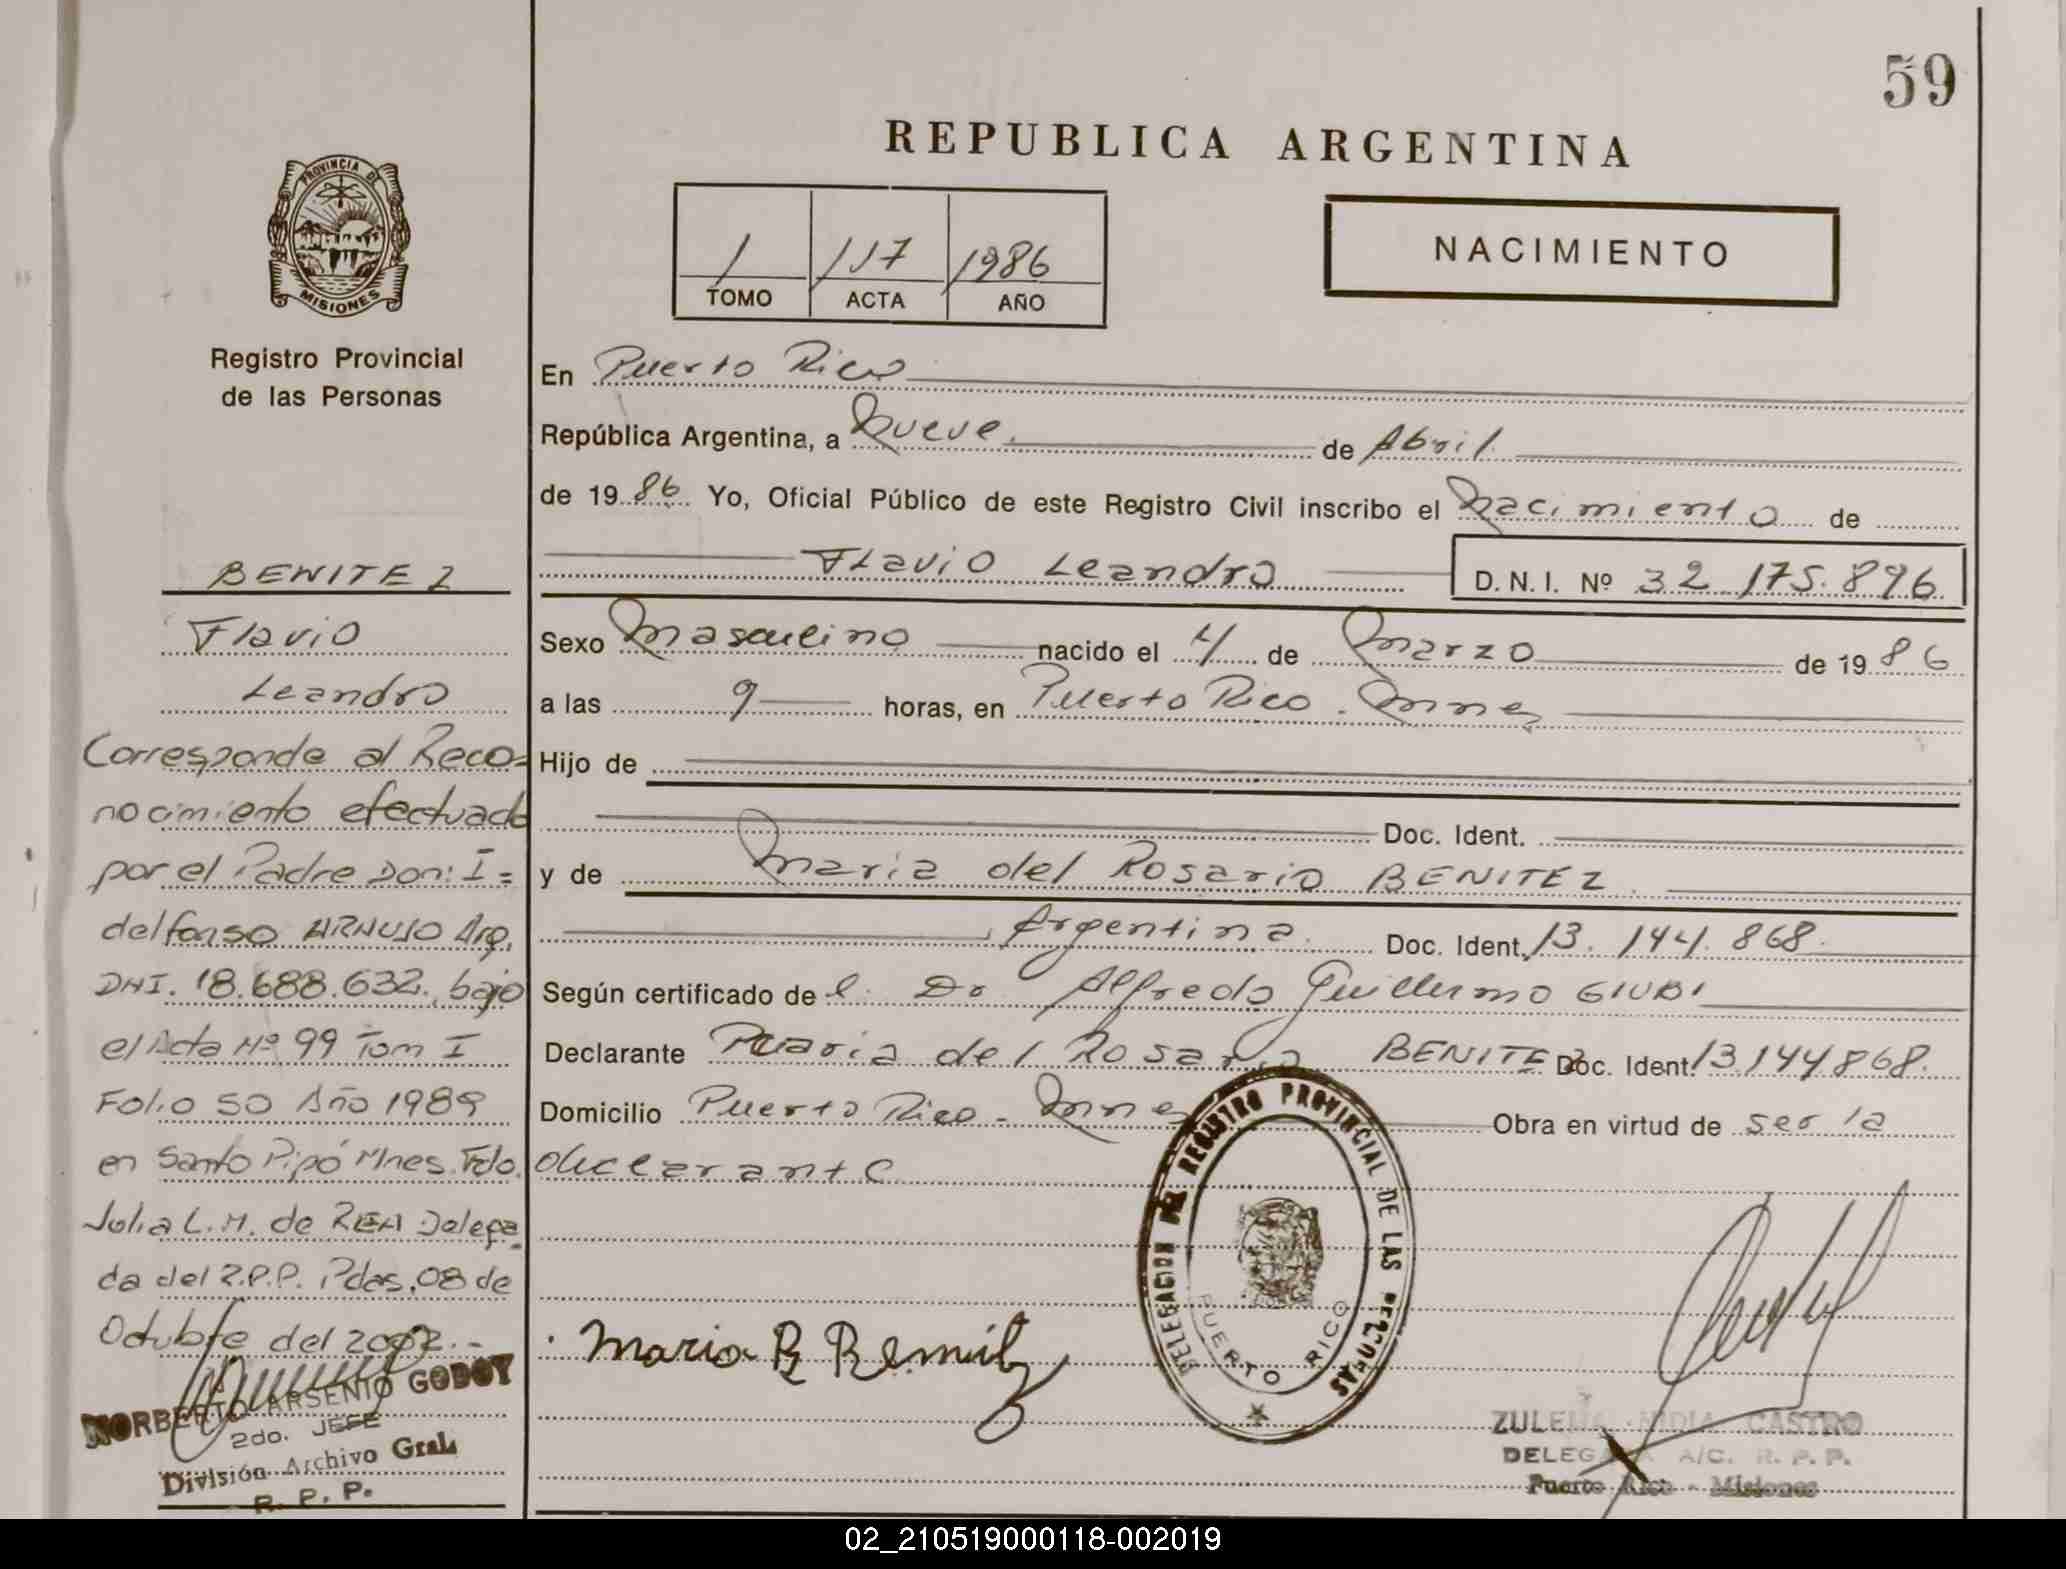 59
REPUBLICA ARGENTINA
PROVINCIA DE
MISIONES
Registro Provincial
de las Personas
1 117 1986
TOMO ACTA AÑO
NACIMIENTO
En Puerto Rico
República Argentina, a Nueve de Abril
de 1986 Yo, Oficial Público de este Registro Civil inscribo el Nacimiento de
Flavio Leandro D.N.I. Nº 32.175.896
Sexo Masculino nacido el 4 de Marzo de 1986
a las 9 horas, en Puerto Rico - Mnes
Hijo de
Doc. Ident.
y de Maria del Rosario BENITEZ
Argentina. Doc. Ident. 13.144.868.
Según certificado del Dr Alfredo Guillermo GIUBI
Declarante Maria del Rosario BENITEZ Doc. Ident 13.144.868.
Domicilio Puerto Rico - Mnes Obra en virtud de ser la
declarante
BENITEZ
Flavio
Leandro
Corresponde al Reco=
nocimiento efectuado
por el Padre Don: I=
delfonso ARNUJO Arg.
DNI. 18.688.632. bajo
el Acta Nº 99 Tom I
Folio 50 Año 1989
en Santo Pipó Mnes. Fdo.
Julia L.M. de REA Delega
da del R.P.P. Pdas, 08 de
Octubre del 2002.-
NORBERTO ARSENIO GODOY
2do. JEFE
División Archivo Gral.
R. P. P.
Maria R Benitez
DELEGACION DEL REGISTRO PROVINCIAL DE LAS PERSONAS
PUERTO RICO
ZULEMA NIDIA CASTRO
DELEGADA A/C. R. P. P.
Puerto Rico - Misiones
02_210519000118-002019